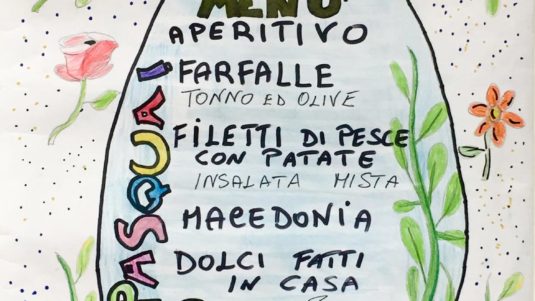 MENÙ
APERITIVO
FARFALLE
TONNO ED OLIVE
FILETTI DI PESCE
CON PATATE
INSALATA MISTA
MACEDONIA
DOLCI FATTI
IN CASA